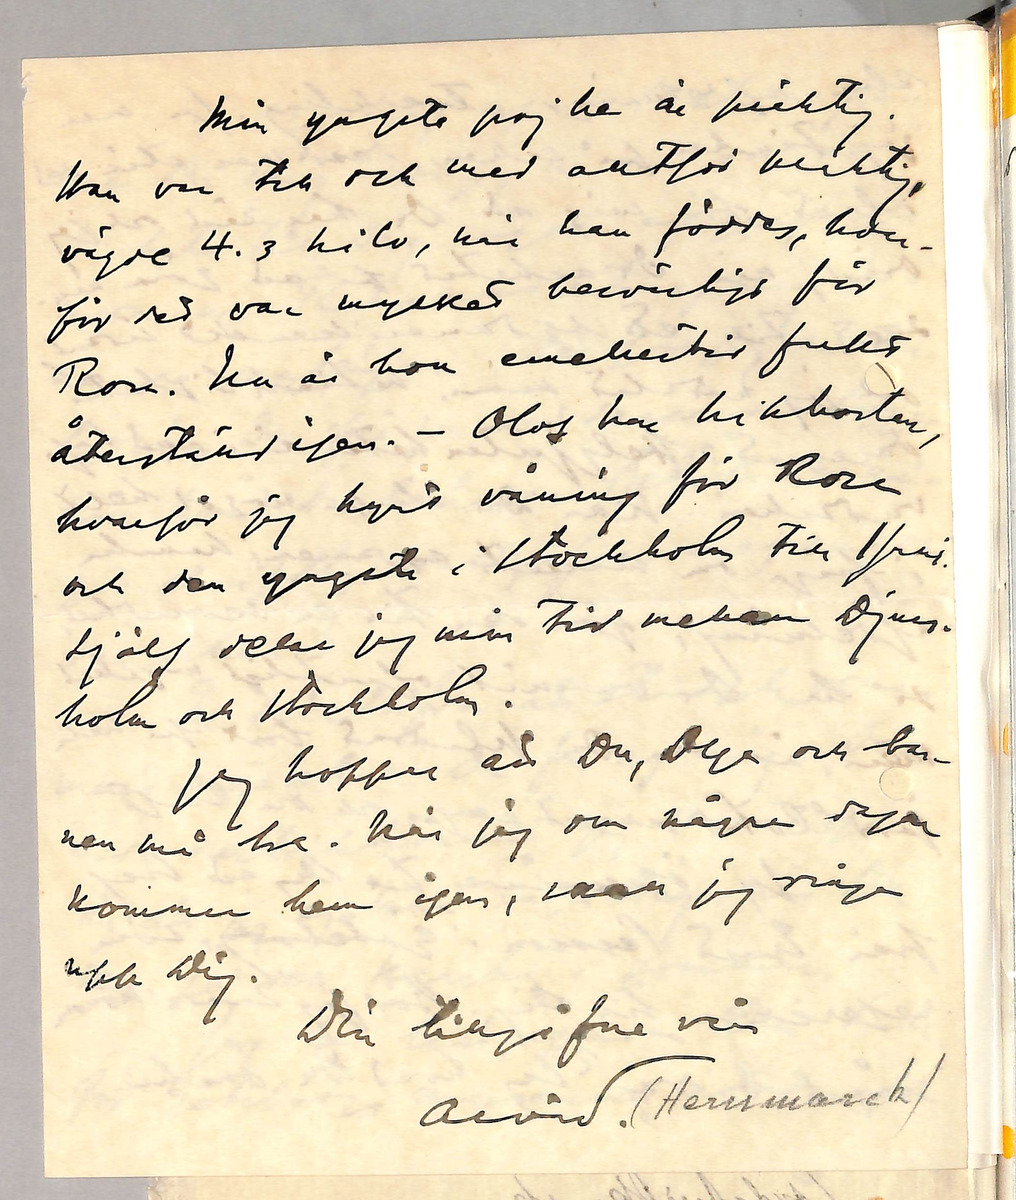 Min yngste pojke är präktig.
Han var till och med alltför kraftig,
vägde 4.3 kilo, när han föddes, hvar-
för det var mycket besvärligt för
Rosa. Nu är hon emellertid fullt
återställd igen. – Olof har kikhostan,
hvarför jag hyrt våning för Rosa
och den yngste i Stockholm till 1 juni.
Själf delar jag min tid mellan Djurs-
holm och Stockholm.
Jag hoppas att Du, Olga och bar-
nen må bra. När jag om några dagar
kommer hem igen, skall jag ringa
upp Dig.
Din tillgifne vän
Arvid. (Hernmarck)